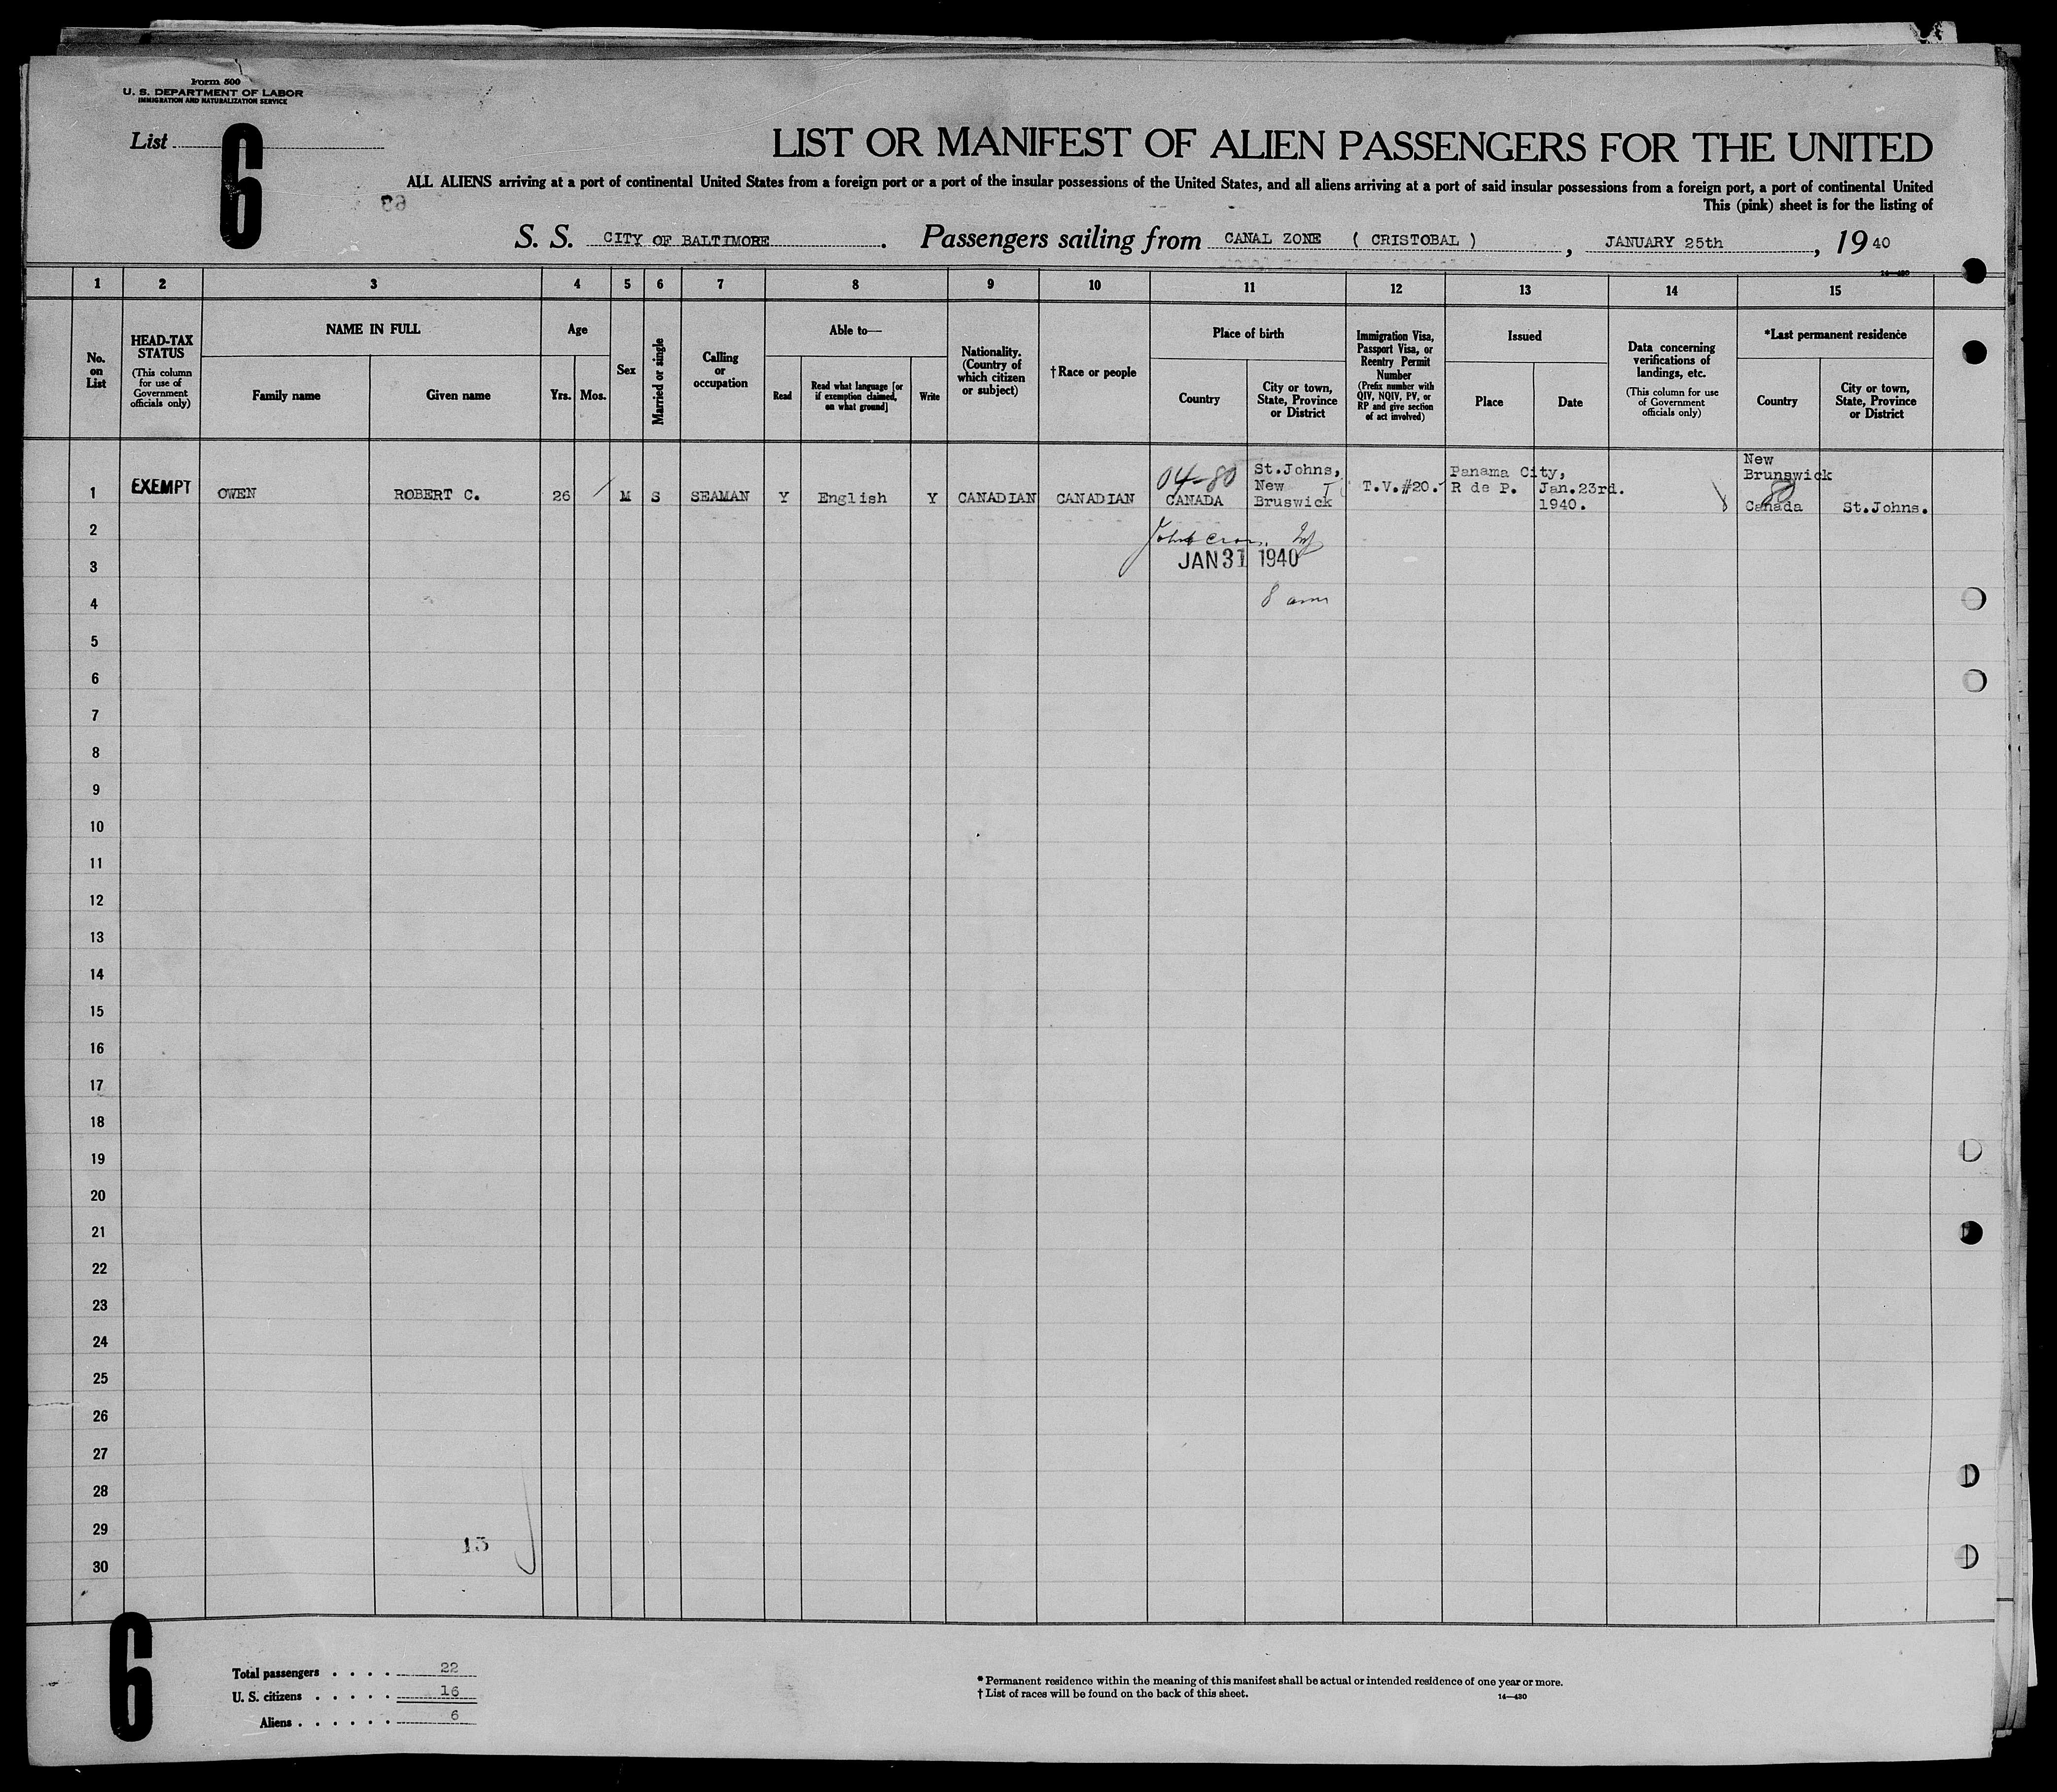 Form 500
U. S. DEPARTMENT OF LABOR
IMMIGRATION AND NATURALIZATION SERVICE
List
6
LIST OR MANIFEST OF ALIEN PASSENGERS FOR THE UNITED
ALL ALIENS arriving at a port of continental United States from a foreign port or a port of the insular possessions of the United States, and all aliens arriving at a port of said insular possessions from a foreign port, a port of continental United
This (pink) sheet is for the listing of
S. S. CITY OF BALTIMORE. Passengers sailing from CANAL ZONE ( CRISTOBAL ), JANUARY 25th, 1940
14—430
1 2 3 4 5 6 7 8 9 10 11 12 13 14 15
No. on List
HEAD-TAX STATUS
(This column for use of Government officials only)
NAME IN FULL
Family name
Given name
Age
Yrs. Mos.
Sex
Married or single
Calling or occupation
Able to—
Read
Read what language [or if exemption claimed, on what ground]
Write
Nationality. (Country of which citizen or subject)
†Race or people
Place of birth
Country
City or town, State, Province or District
Immigration Visa, Passport Visa, or Reentry Permit Number
(Prefix number with QIV, NQIV, PV, or RP and give section of act involved)
Issued
Place
Date
Data concerning verifications of landings, etc.
(This column for use of Government officials only)
*Last permanent residence
Country
City or town, State, Province or District
1 EXEMPT OWEN ROBERT C. 26 M S SEAMAN Y English Y CANADIAN CANADIAN
04-80
CANADA
St.Johns,
New
Bruswick
T.V.#20.
Panama City,
R de P.
Jan.23rd.
1940.
New
Brunswick
8
Canada
St.Johns.
2
3 JAN 31 1940
4 8 am
5
6
7
8
9
10
11
12
13
14
15
16
17
18
19
20
21
22
23
24
25
26
27
28
29
13
30
6
Total passengers . . . . 22
U. S. citizens . . . . . 16
Aliens . . . . . . 6
* Permanent residence within the meaning of this manifest shall be actual or intended residence of one year or more.
† List of races will be found on the back of this sheet.
14—430